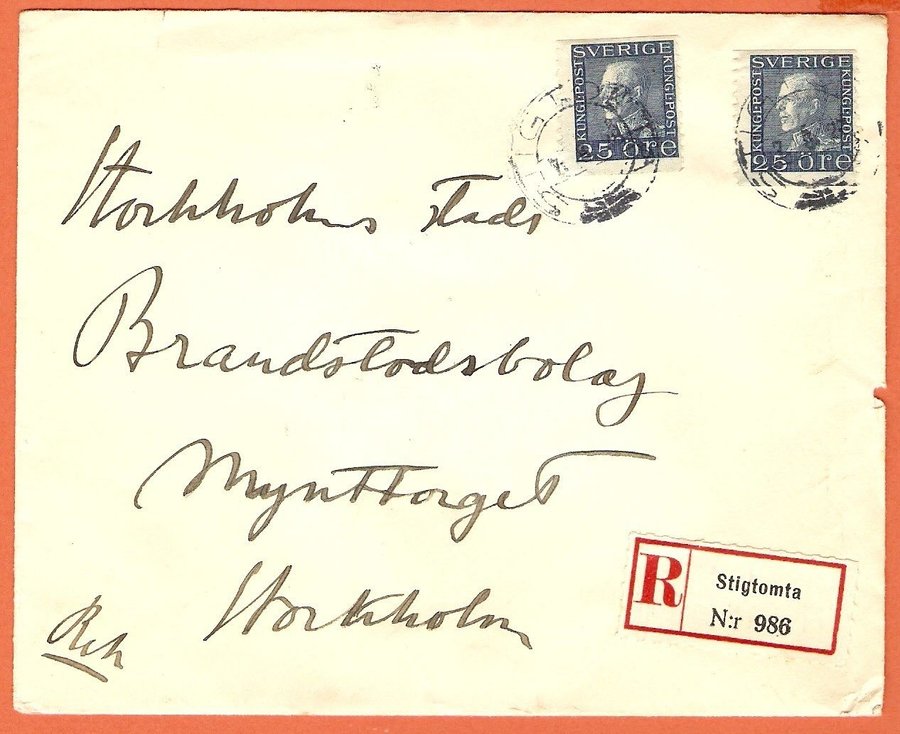 SVERIGE
KUNGL·POST
KUNGL·POST
25 öre
SVERIGE
KUNGL·POST
KUNGL·POST
25 öre
Stockholms stads
Brandstodsbolag
Mynttorget
Stockholm
Rek
R
Stigtomta
N:r 986